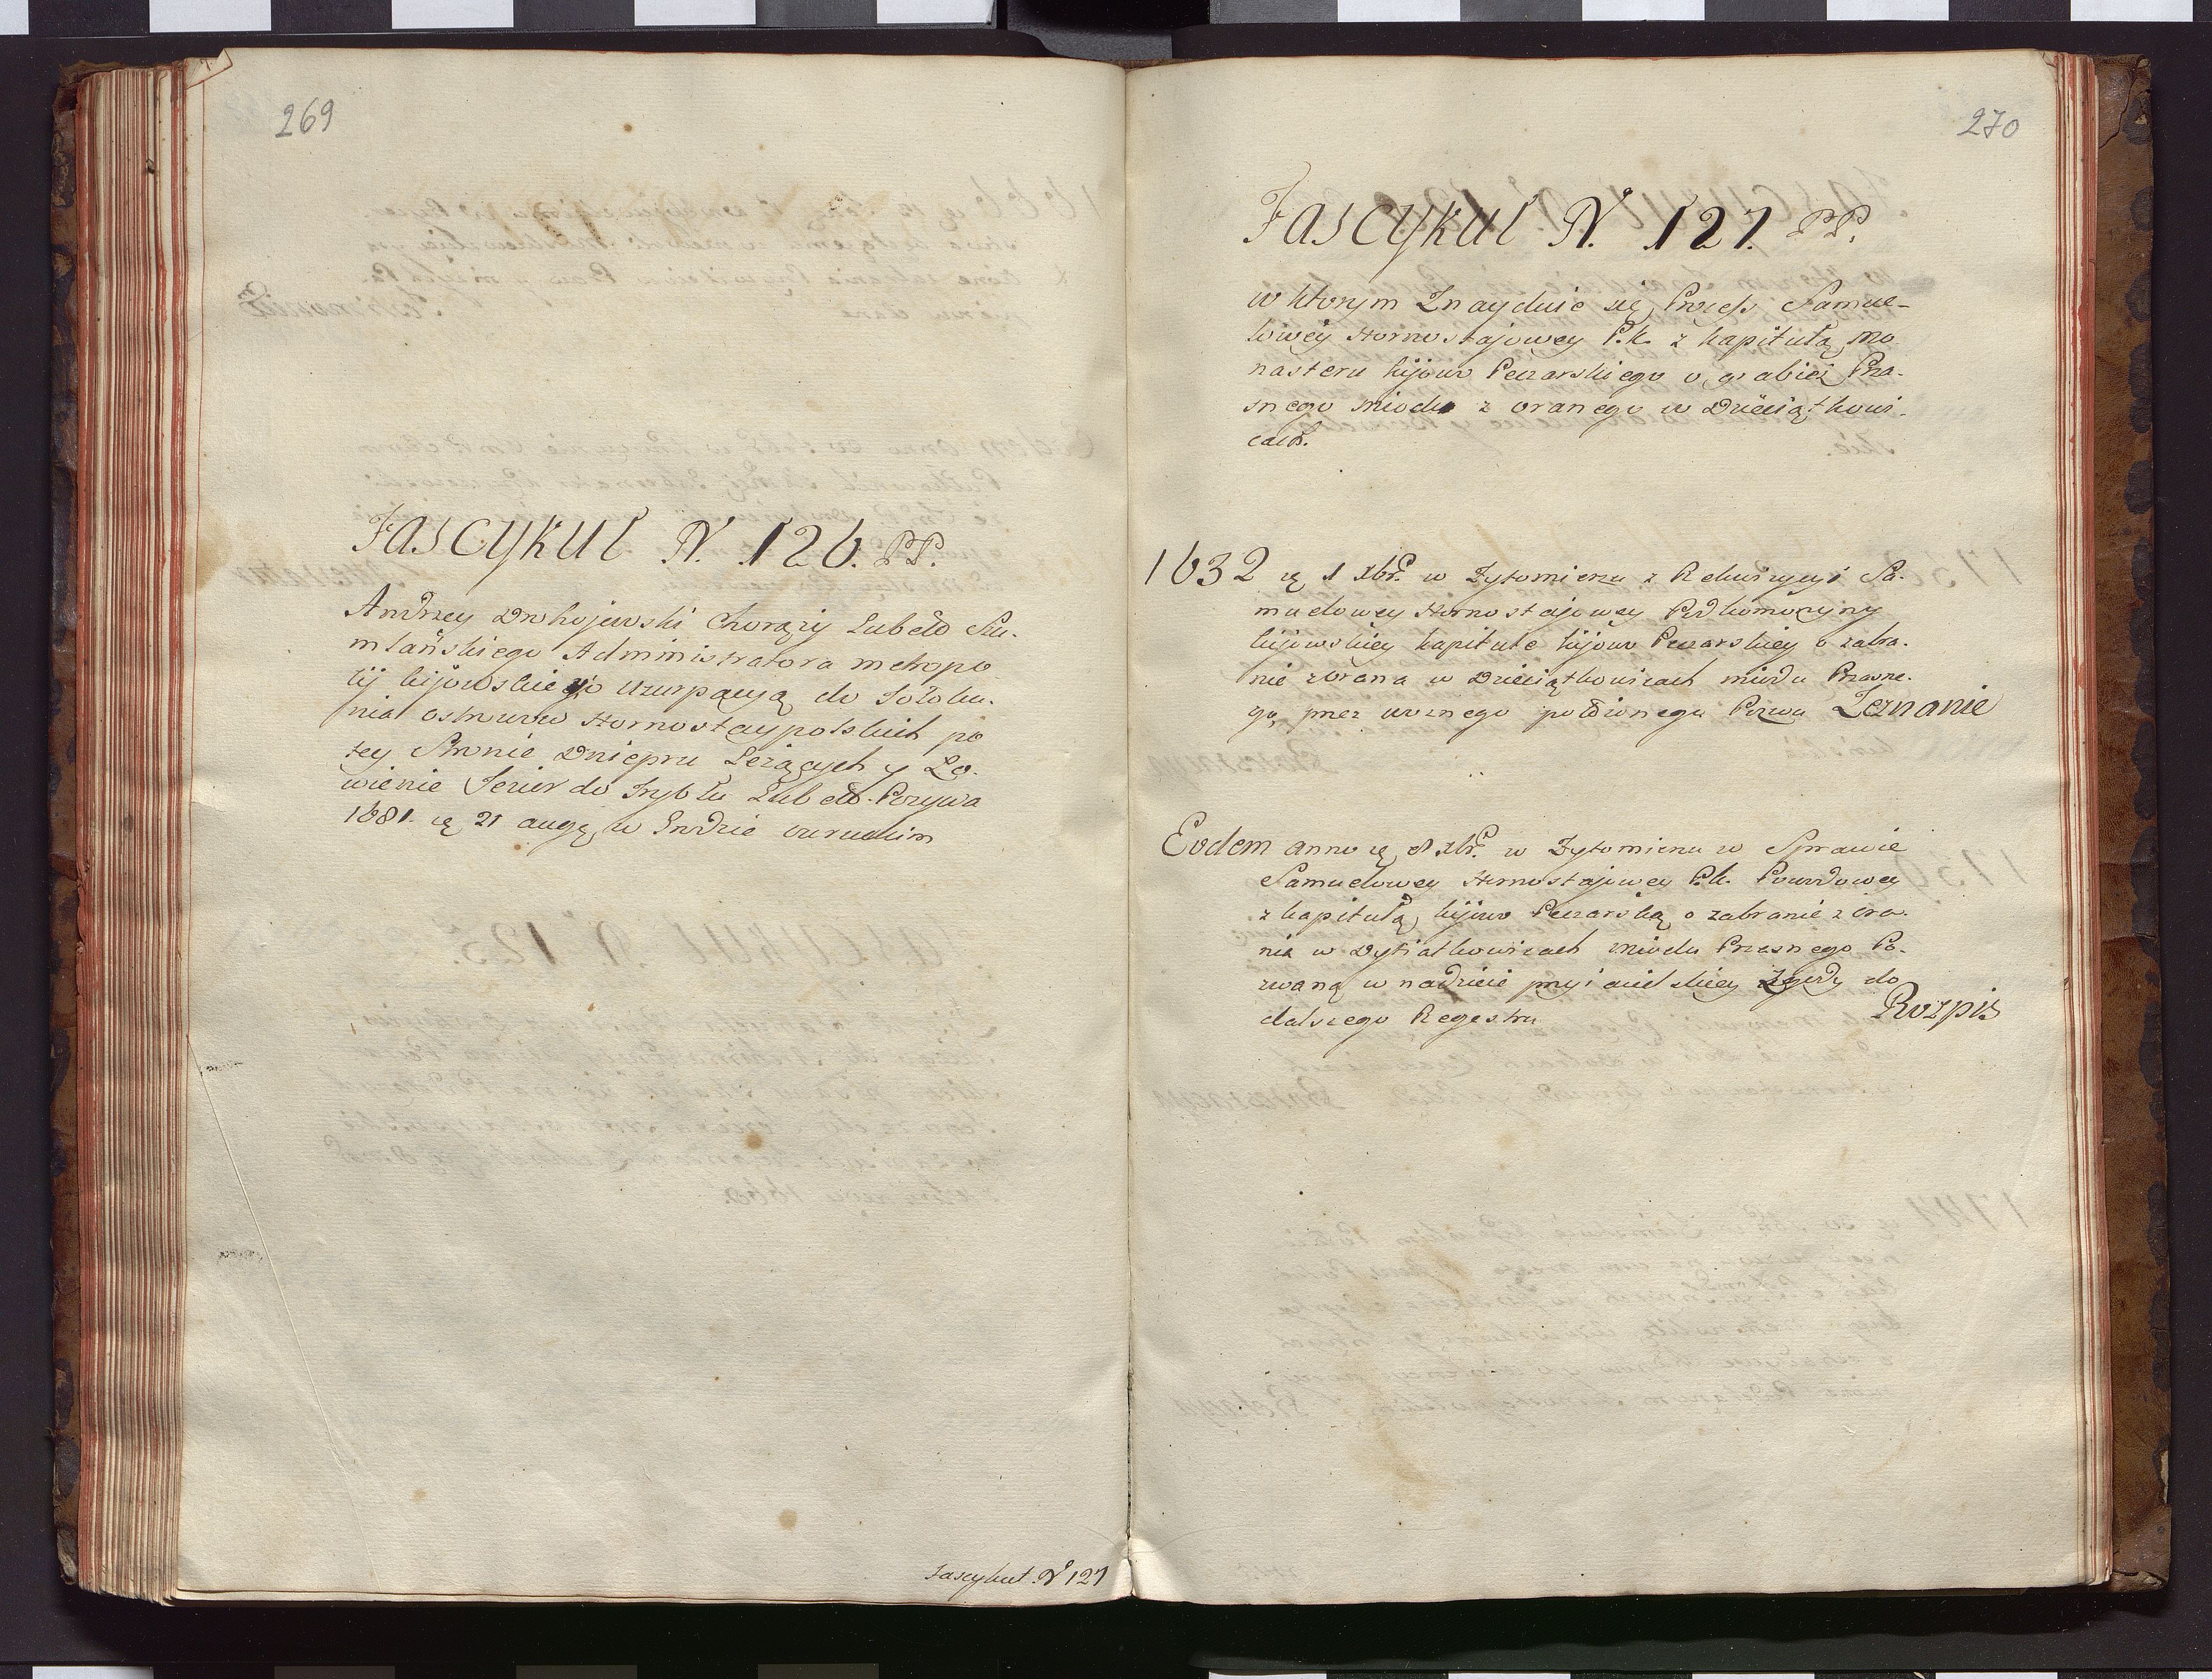 269
Fascykuł N. 126. PP.
Andrzey Drohojewski Chorąży Lubelo Szu-
mlańskiego Administratora metropo
lij kijowskiego uzurpacyą do Sołobu-
nia ostrowów Hornostaypolskich po
tey Stronie Dniepru Leżących y Ło-
wienie Jezior do Trybłu Lubelo. Pozywa
1681. ią 21 augą w Grodzie owruckim
Fascykuł N 127
270
Fascykuł N. 127. PP.
w którym Znayduie się Process Samue-
lowey Hornostajowey P.K. z kapitułą mo
nasteru kijowo Peczarskiego o grabież Prza-
snego miodu z oranego w Dzieciątkowi-
cach.
1632 ią 1 xbr. w Żytomierzu z Rekwizycyi Sa-
muelowey Hornostajowey Podkomorzyny
kijowskiey kapitule kijowo Peczarskiey o zabra-
nie zorana w Dzieciątkowicach miodu Przasne-
go, przez woznego położonego Pozwu Zeznanie
Eodem anno ią 8 xbr. w Żytomierzu w Sprawie
Samuelowey Hornostajowey P.K. Powodowey
z kapitułą kijowo Peczarską o zabranie z ora-
nia w Dytiatkowicach miodu Przasnego Po-
zwaną w nadzieie przyiacielskiey zgody do
dalszego Regestru Rozpis